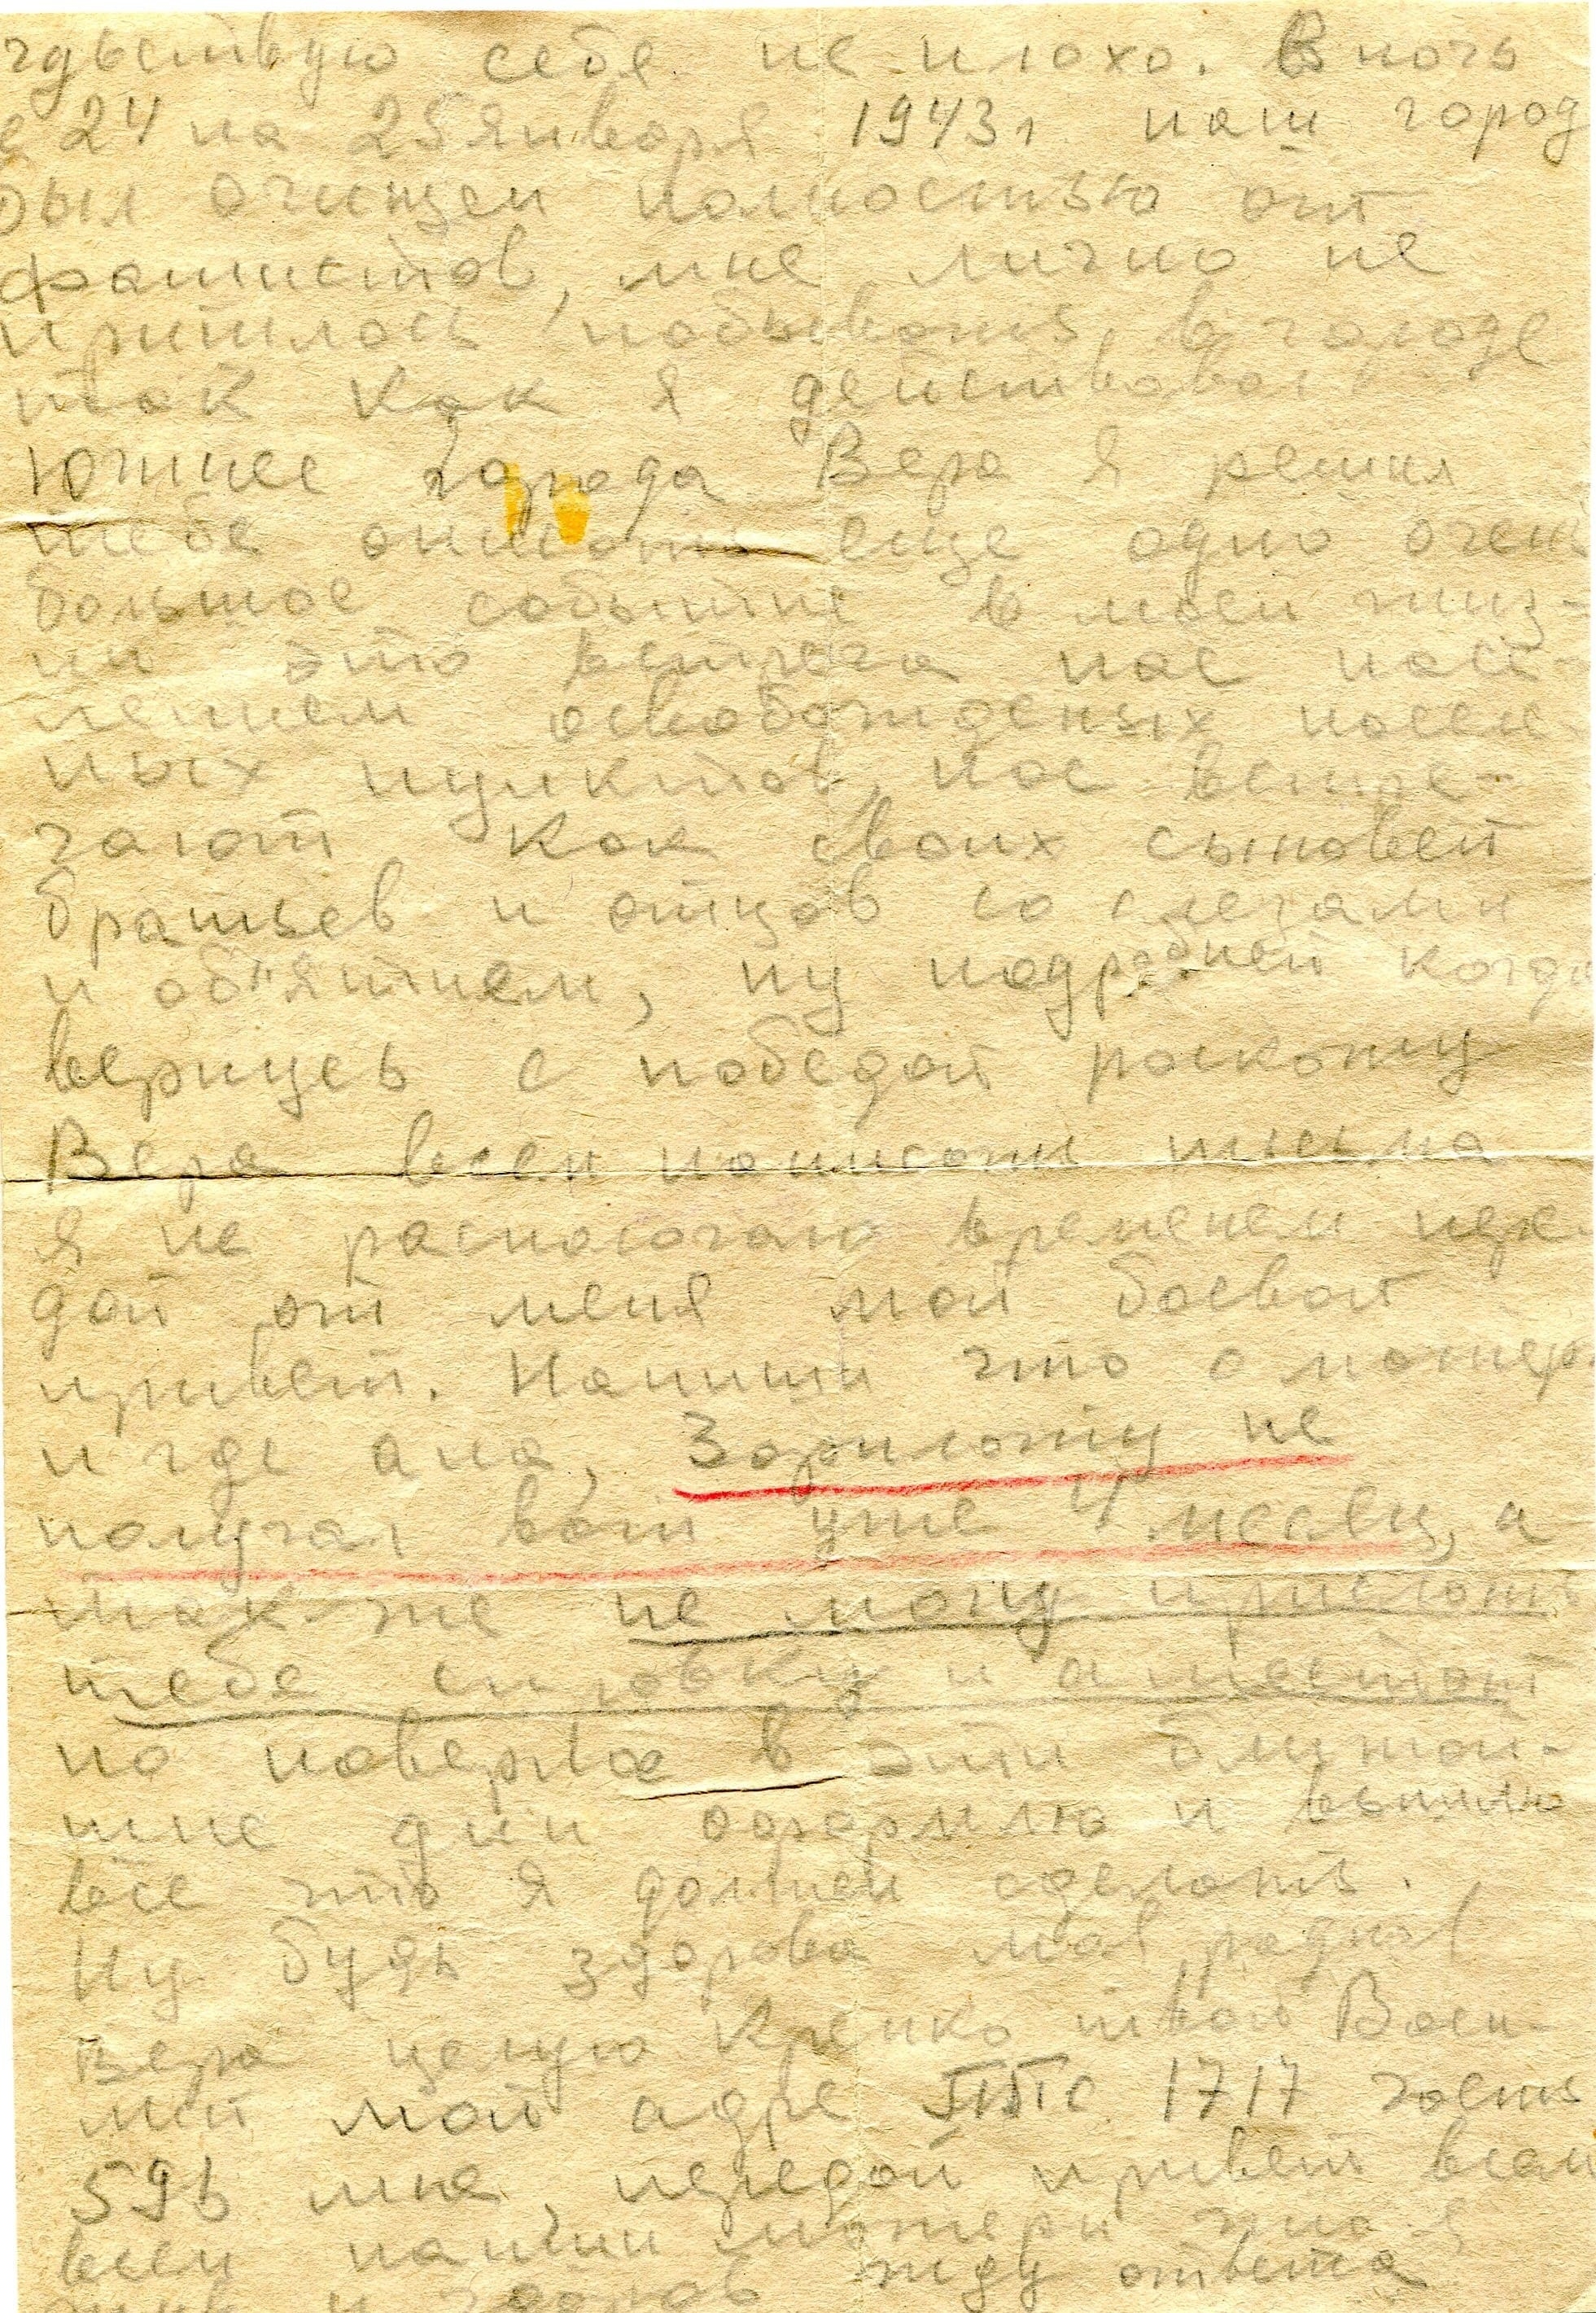 чувствую себя не плохо. В ночь
с 24 на 25 января 1943 г наш город
был очищен полностью от
фашистов, мне лично не
пришлось побывать, в городе
так как я действовал
южнее города Вера я решил
тебе описать еще одно очень
большое событие в моей жиз-
ни это встреча нас насе-
лением освобожденых населен
ных пунктов, нас встре-
чают как своих сыновей
братьев и отцов со слезами
и об"ятием, ну подробней когда
вернусь с победой раскажу
Вера всем написать письма
я не распологаю временем пере
дай от меня мой боевой
привет. Напиши что с матер
и где ана, Зарплату не
получал вот уже 4 месяц, а
так-же не могу прислать
тебе справку и аттестат
но наверное в эти ближай-
шие дни оформлю и вышлю
все что я должен сделать.
Ну будь здорова моя родная
Вера целую крепко твой Васи-
лий мой адре ППС. 1717 часть
596 мне, передай привет всем
всем напиши матери что я
жив и здоров жду ответа